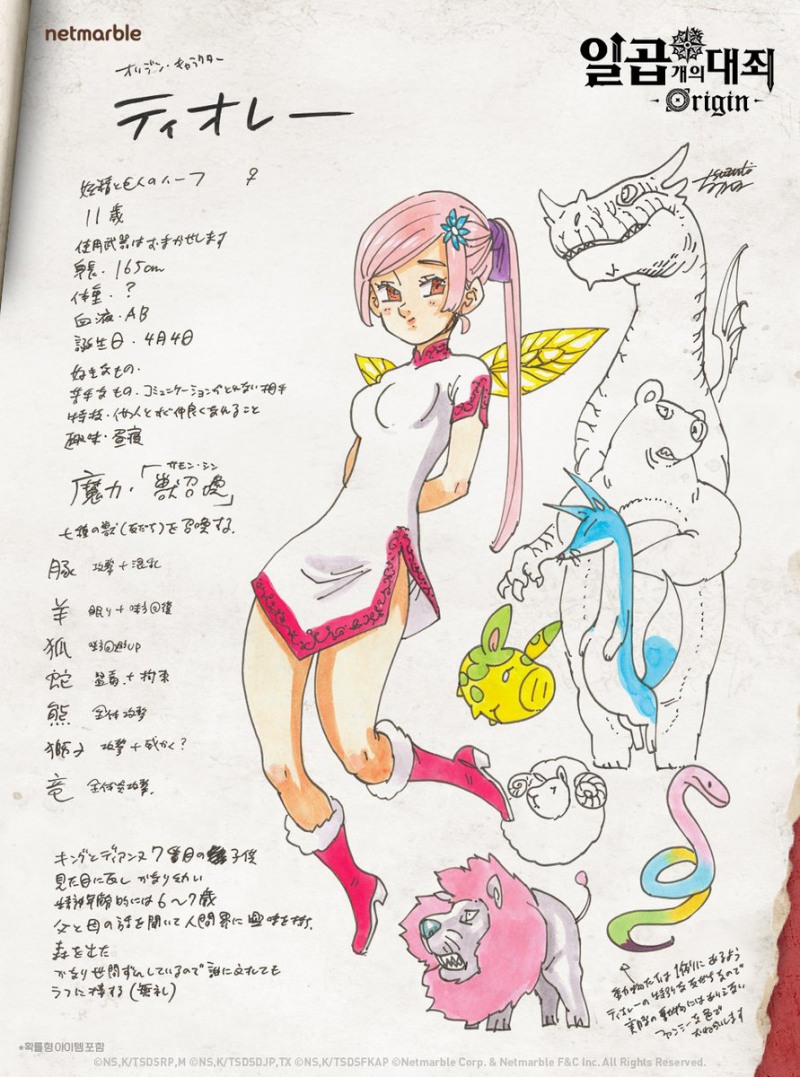 netmarble
일곱개의 대죄
Origin
オリジン・キャラクター
ティオレー
妖精と巨人のハーフ ♀
11歳
使用武器はおまかせします
身長・165cm
体重・?
血液・AB
誕生日・4月4日
好きなもの・
苦手なもの・コミュニケーションがとれない相手
特技・他人とすぐ仲良くなれること
趣味・昼寝
サモン・シン
魔力・「獣召喚」
七種の獣(友だち)を召喚する.
豚 攻撃+混乱
羊 眠り+味方回復
狐 味方回避UP
蛇 猛毒+拘束
熊 全体攻撃
獅子 攻撃+威かく?
竜 全体炎攻撃.
キングとディアンヌ7番目の子供
見た目に反しかなり幼い
精神年齢的には6〜7歳
父と母の話を聞いて人間界に興味を持ち.
森を出た
かなり世間ずれしているので誰に対しても
ラフに接する(無礼)
動物たちは1例にあるよう
ティオレーの特別な友だちなので
実際の動物にはありえない
ファンシーな色で
おねがいします
*확률형 아이템 포함
©NS,K/TSDSRP,M ©NS,K/TSDSDJP,TX ©NS,K/TSDSFKAP ©Netmarble Corp. & Netmarble F&C Inc. All Rights Reserved.